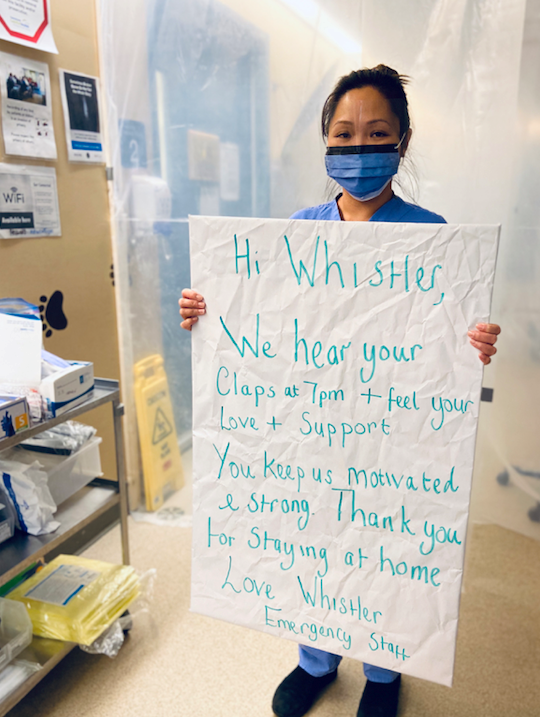 WiFi
Available here
2
Hi Whistler,
We hear your
Claps at 7pm + feel your
Love + Support
You keep us motivated
& strong. Thank you
for staying at home
Love Whistler
Emergency Staff